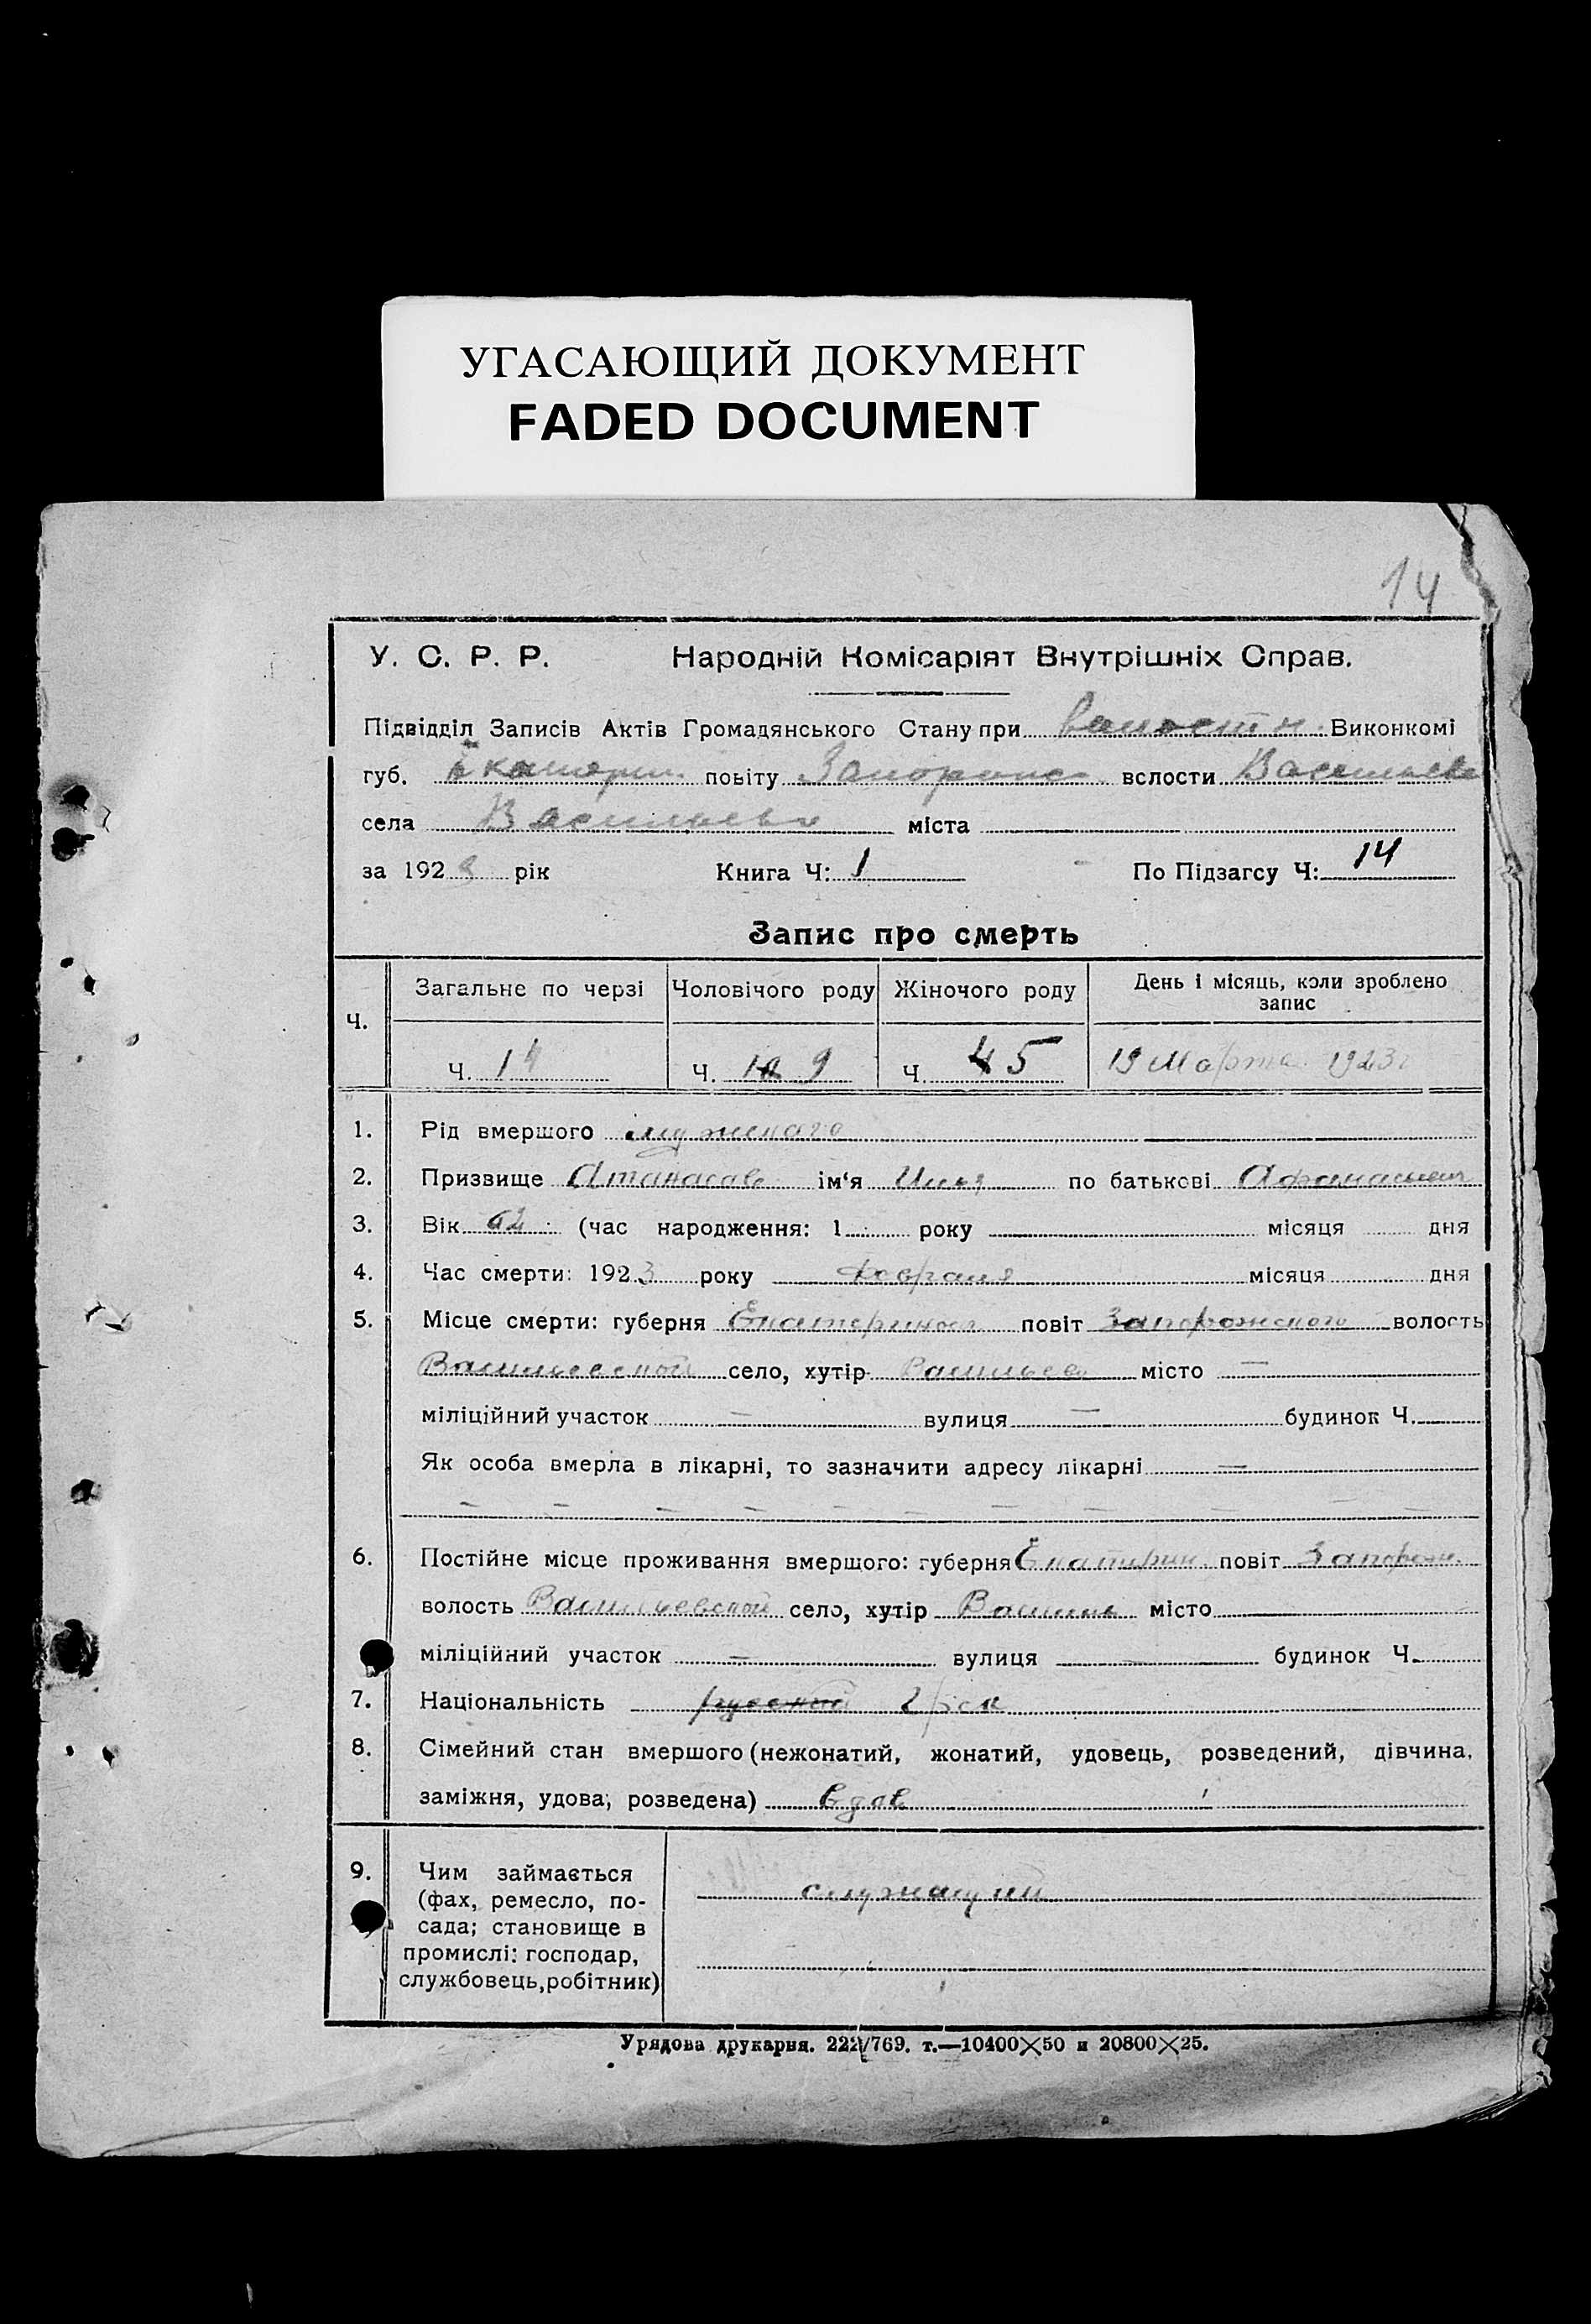 УГАСАЮЩИЙ ДОКУМЕНТ
FADED DOCUMENT
14
У. С. Р. Р. Народній Комісаріят Внутрішніх Справ.
Підвідділ Записів Актів Громадянського Стану при волостн. Виконкомі
губ. Екатерин. повіту Запорожс вслости Васильев
села Васильевка міста
за 1923 рік Книга Ч: 1 По Підзагсу Ч: 14
Запис про смерть
Ч. Загальне по черзі Чоловічого роду Жіночого роду День і місяць, коли зроблено запис
Ч. 14 Ч. 9 Ч. 5 19 Марта 1923 г
1. Рід вмершого мужскаго
2. Призвище Атанасов ім'я Илья по батькові Афанасьевич
3. Вік 62 (час народження: 1 року місяця дня
4. Час смерти: 1923 року Февраля місяця дня
5. Місце смерти: губерня Екатериносл повіт Запорожского волость
Васильевской село, хутір Васильев місто —
міліційний участок — вулиця — будинок Ч.
Як особа вмерла в лікарні, то зазначити адресу лікарні —
— — — — — — — — — — —
6. Постійне місце проживання вмершого: губерня Екатерин. повіт Запорож.
волость Васильевской село, хутір Василь місто
міліційний участок — вулиця — будинок Ч.
7. Національність русский грек
8. Сімейний стан вмершого (нежонатий, жонатий, удовець, розведений, дівчина,
заміжня, удова, розведена) вдов
9. Чим займається
(фах, ремесло, по-
сада; становище в
промислі: господар,
службовець, робітник)
служащий
Урядова друкарня. 222/769. т.—10400×50 и 20800×25.